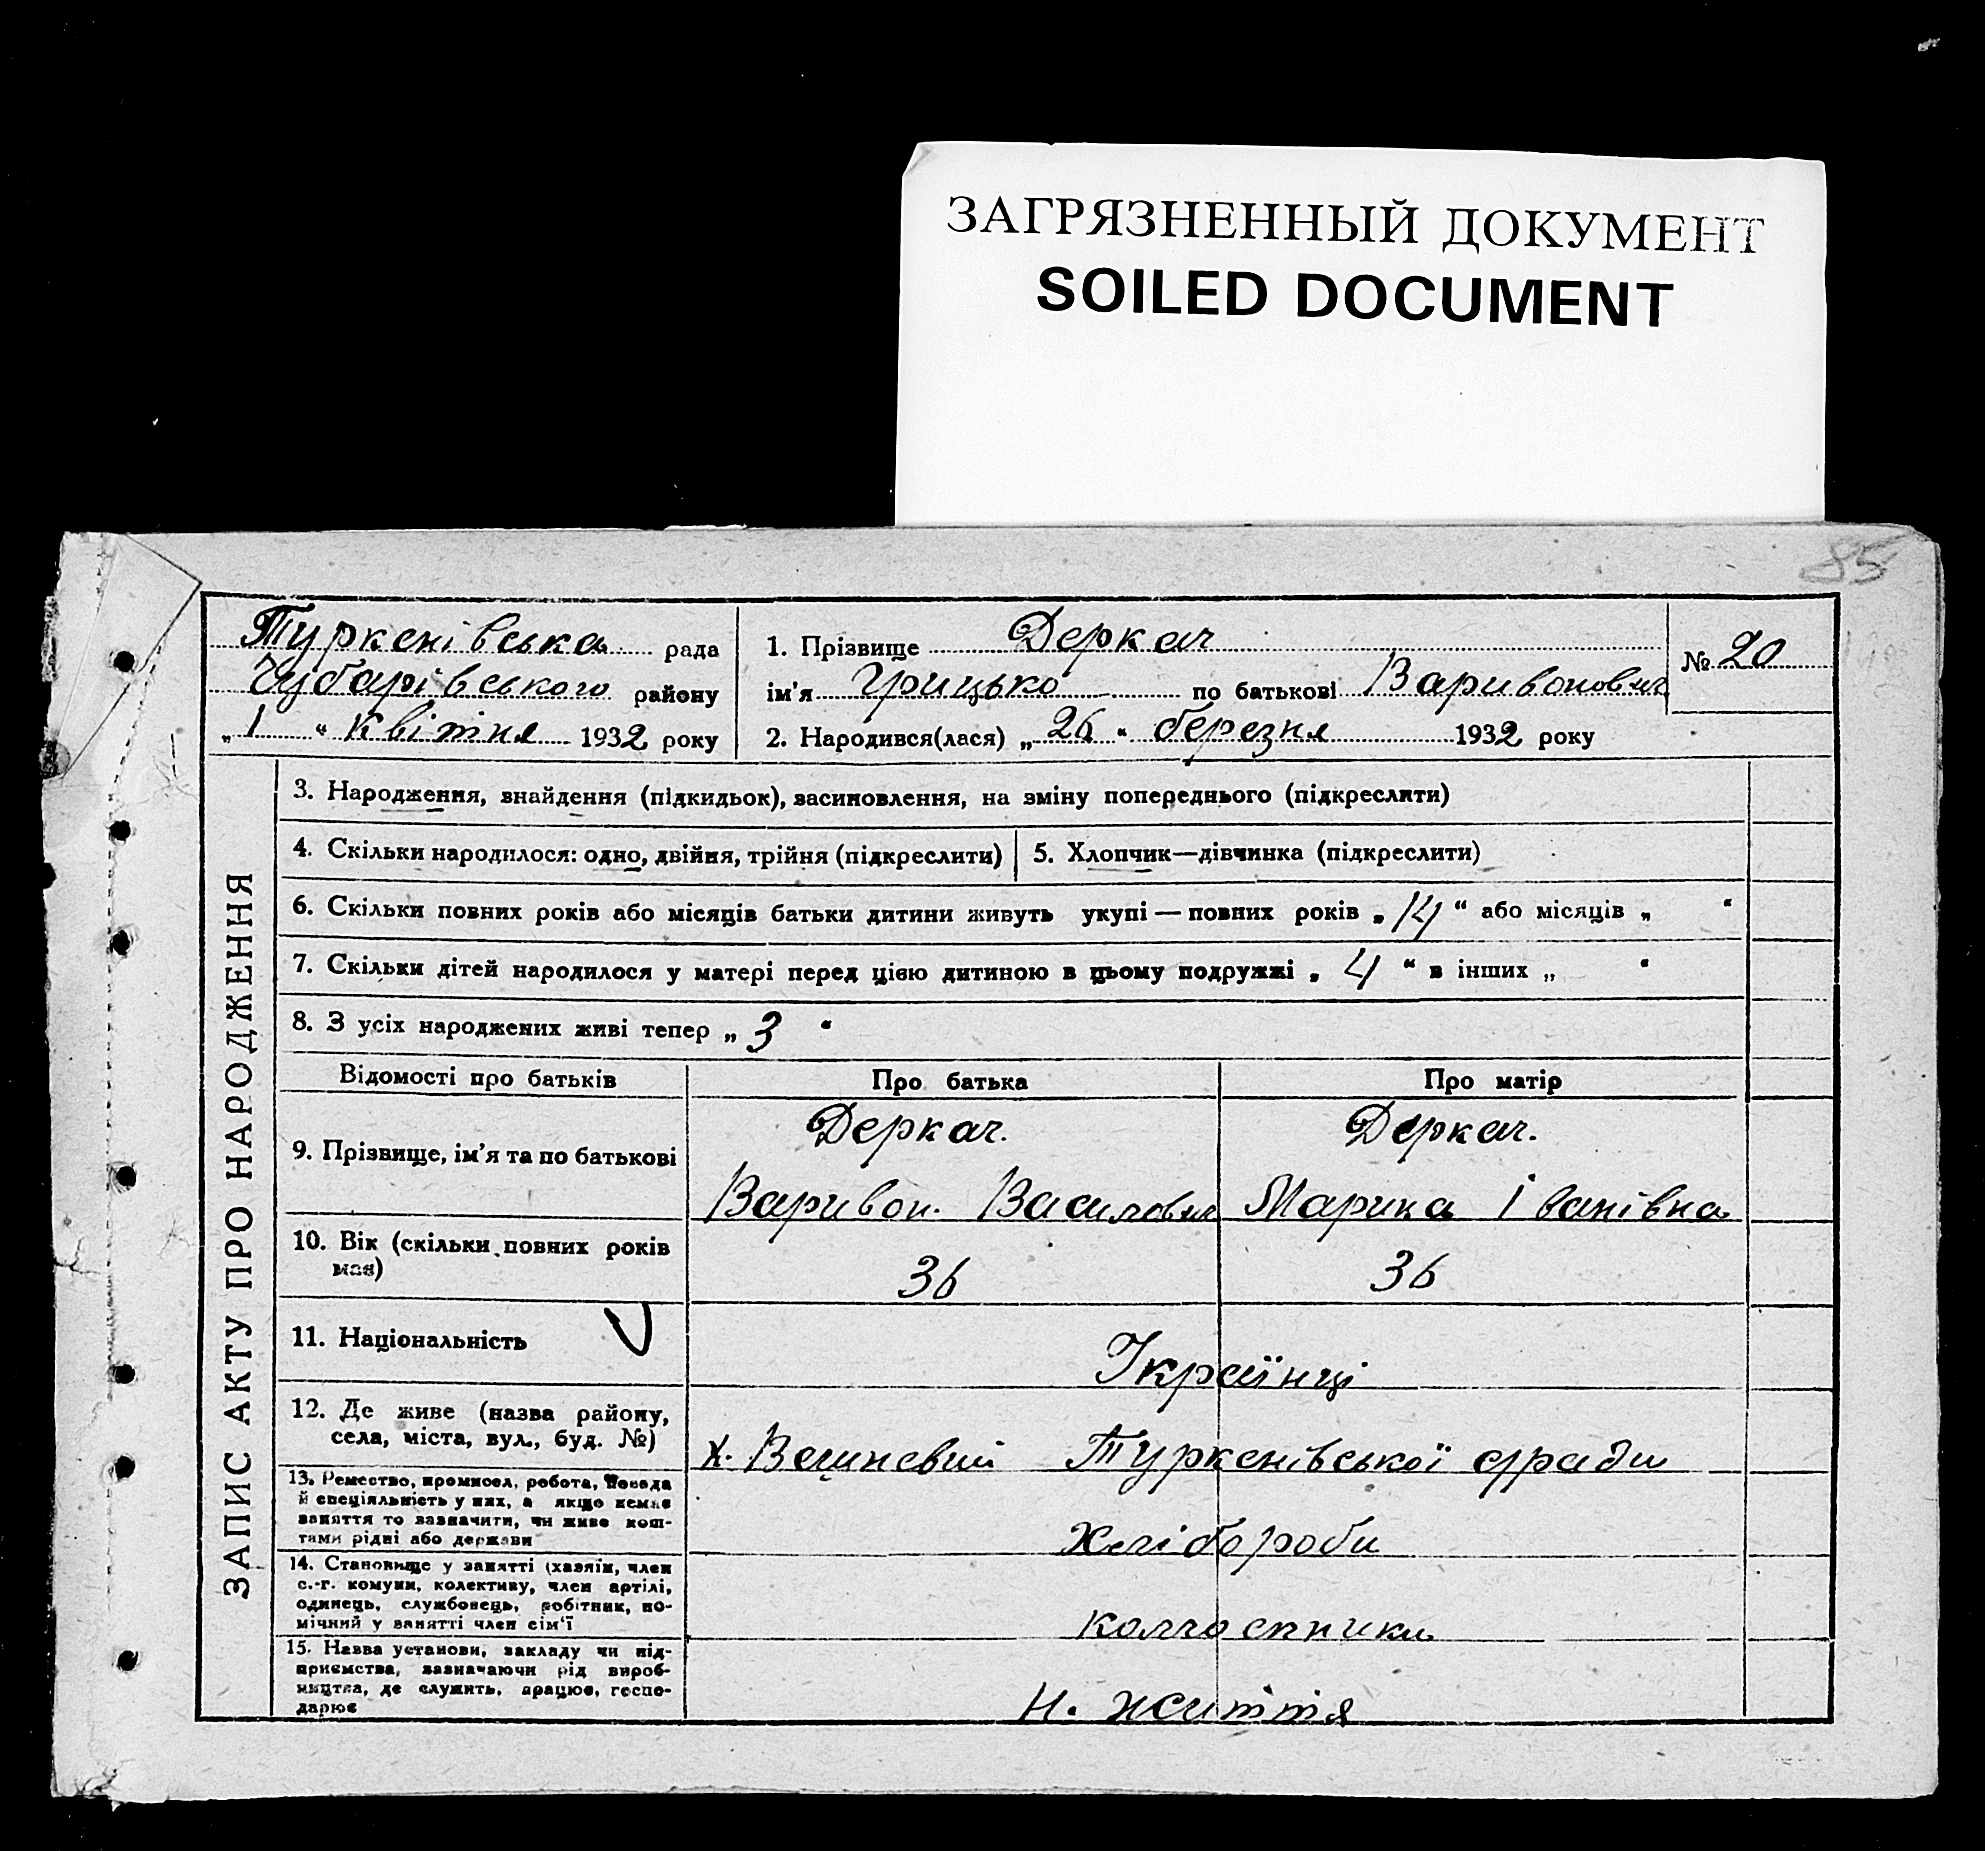 ЗАГРЯЗНЕННЫЙ ДОКУМЕНТ
SOILED DOCUMENT
85
Туркенівська рада
Чубарівського району
„ 1 “ квітня 1932 року
1. Прізвище Деркач
ім'я Грицько по батькові Варивонович
2. Народився(лася) „ 26 “ березня 1932 року
№ 20
ЗАПИС АКТУ ПРО НАРОДЖЕННЯ
3. Народження, знайдення (підкидьок), засиновлення, на зміну попереднього (підкреслити)
4. Скільки народилося: одно, двійня, трійня (підкреслити)
5. Хлопчик—дівчинка (підкреслити)
6. Скільки повних років або місяців батьки дитини живуть укупі — повних років „ 14 “ або місяців „ “
7. Скільки дітей народилося у матері перед цією дитиною в цьому подружжі „ 4 “ в інших „ “
8. З усіх народжених живі тепер „ 3 “
Відомості про батьків
Про батька
Про матір
9. Прізвище, ім'я та по батькові
Деркач.
Варивон. Василович
Деркач.
Марика Іванівна
10. Вік (скільки повних років
має)
36
36
11. Національність
Українці
12. Де живе (назва району,
села, міста, вул., буд. №)
х. Вишневий Туркенівської с/ради
13. Ремество, промисел, робота, посада
й спеціяльність у них, а якщо немає
заняття то зазначити, чи живе кош-
тами рідні або держави
Хлібороби
14. Становище у занятті (хазяїн, член
с.-г. комуни, колективу, член артілі,
одинець, службовець, робітник, по-
мічний у занятті член сім'ї
колгоспники
15. Назва установи, закладу чи під-
приємства, зазначаючи рід вироб-
ництва, де служить, працює, госпо-
дарює
Н. життя